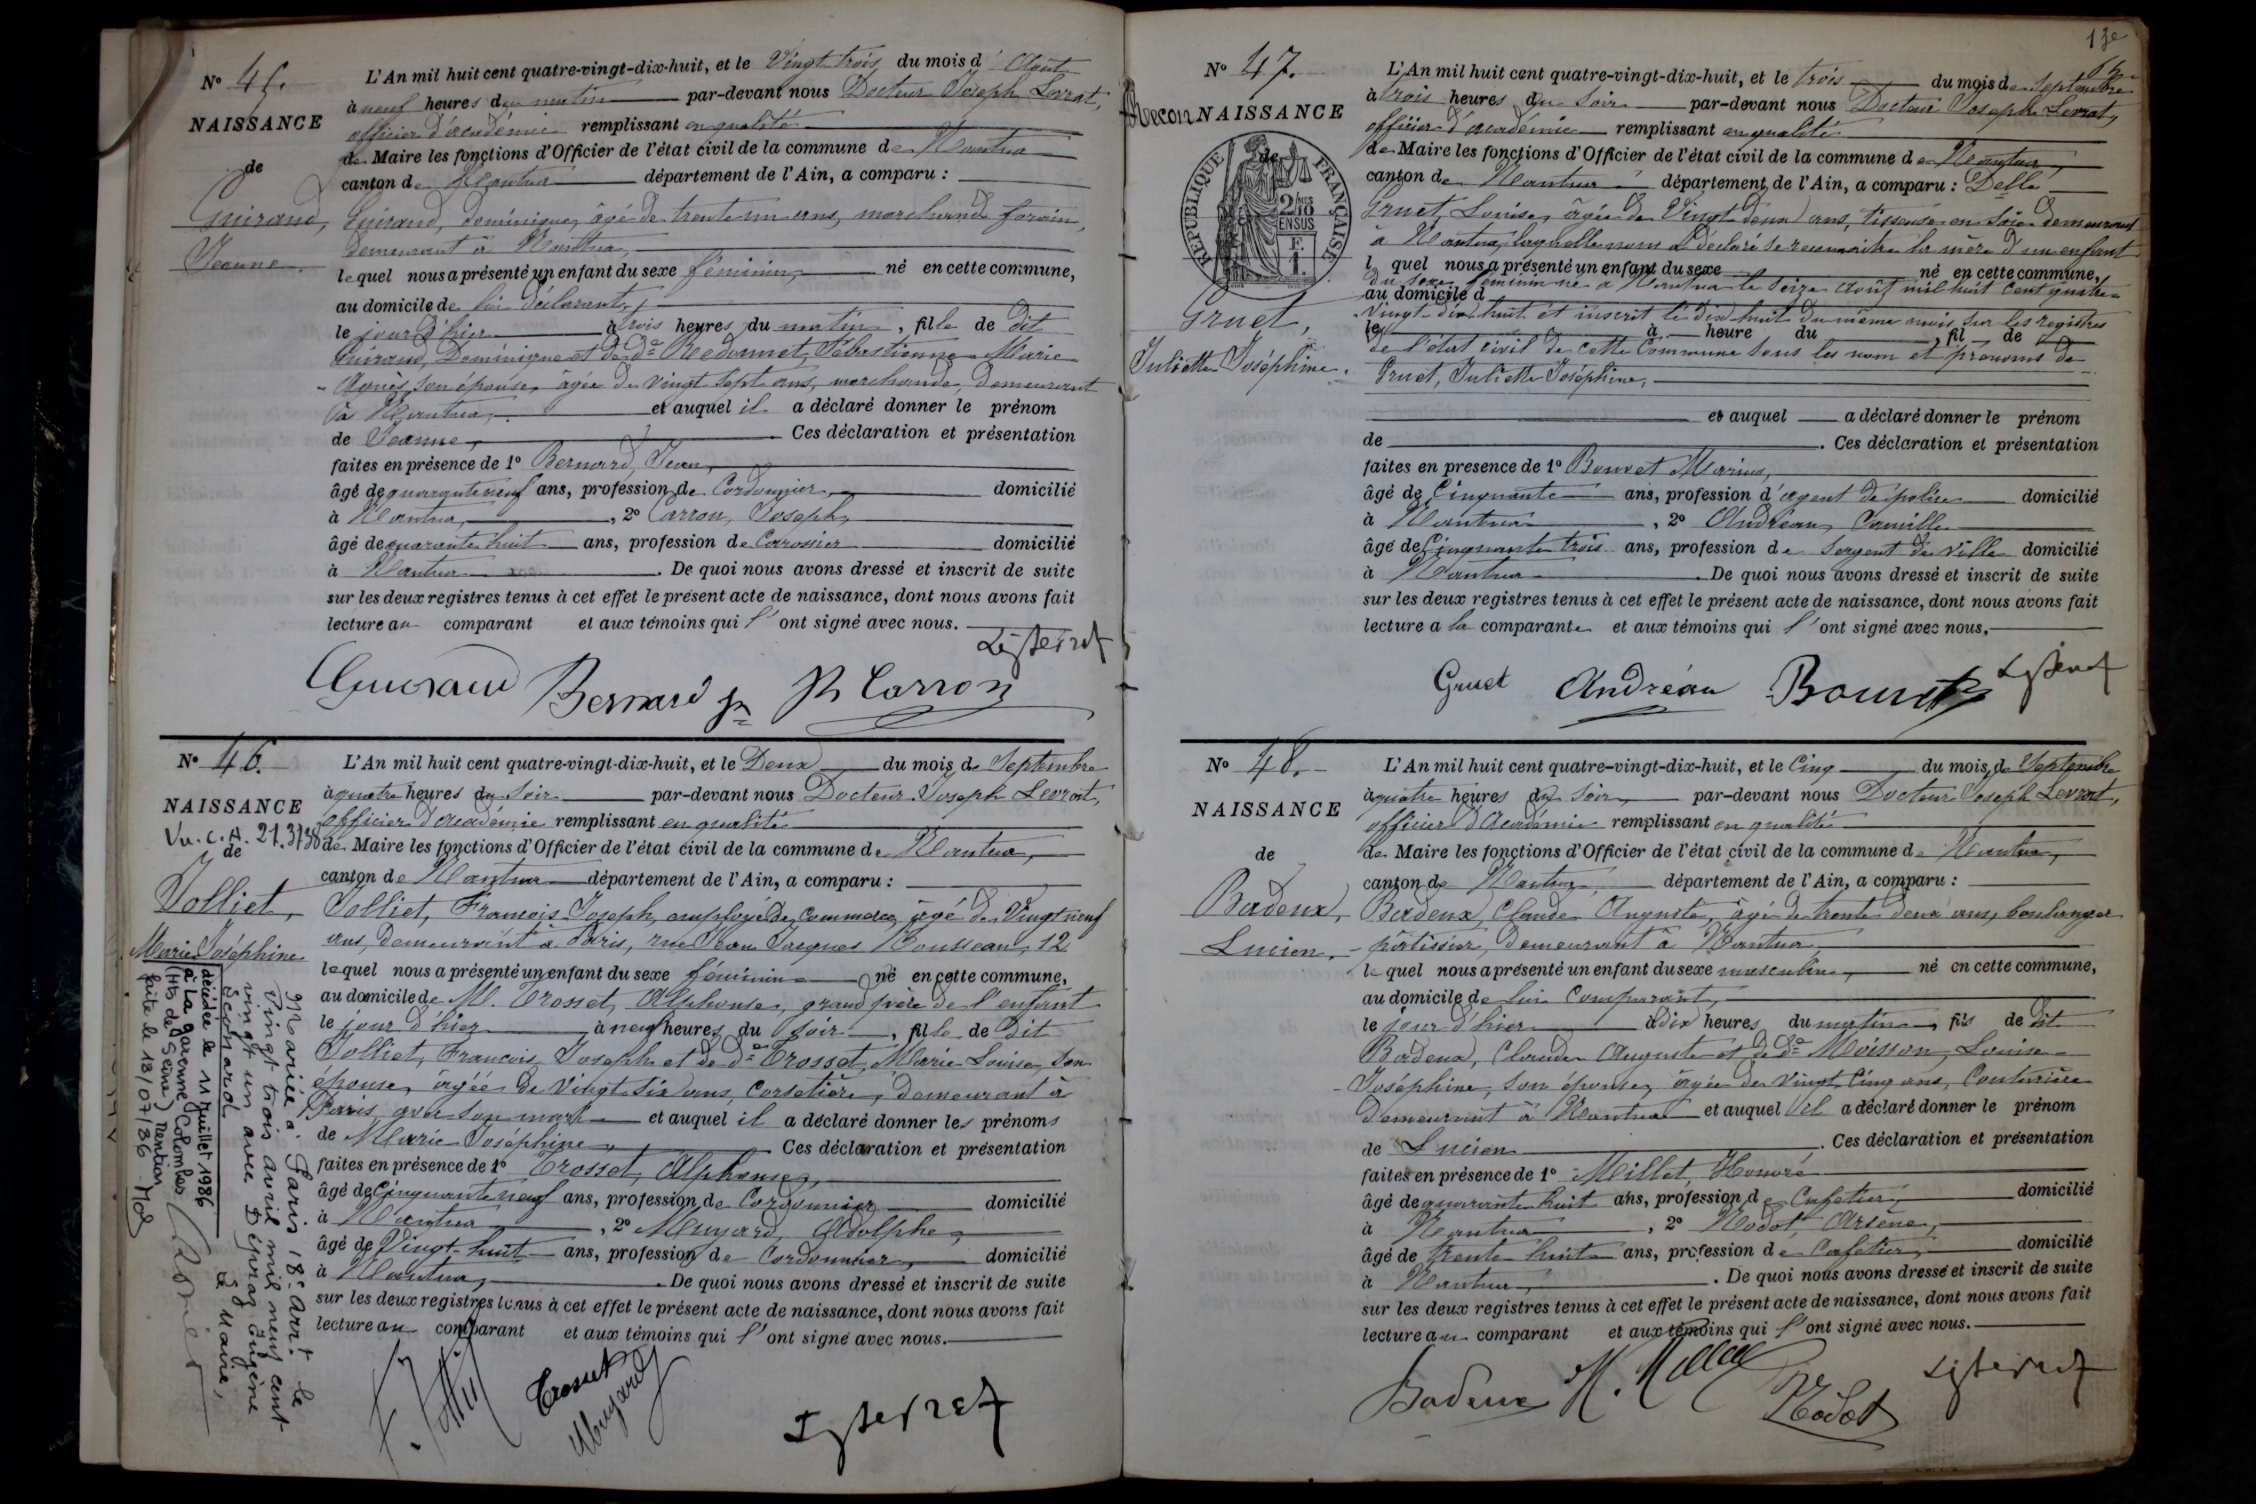 N° 45.
NAISSANCE
de
Guiraud,
Jeanne.
L'An mil huit cent quatre-vingt-dix-huit, et le Vingt trois du mois d' Août
à neuf heures du matin par-devant nous Docteur Joseph Levrat,
officier d'académie remplissant en qualité
de Maire les fonctions d'Officier de l'état civil de la commune de Nantua
canton de Nantua département de l'Ain, a comparu :
Guiraud, Dominique, âgé de trente un ans, marchand forain,
demeurant à Nantua,
lequel nous a présenté un enfant du sexe féminin, né en cette commune,
au domicile de lui déclarant,
le jour d'hier à trois heures du matin, fille de dit
Guiraud, Dominique et de de Redonnet, Sébastienne Marie
Agnès, son épouse, âgée de vingt sept ans, marchande, demeurant
à Nantua, et auquel il a déclaré donner le prénom
de Jeanne, Ces déclaration et présentation
faites en présence de 1° Bernard, Jean,
âgé de quarante neuf ans, profession de Cordonnier, domicilié
à Nantua, , 2° Carron, Joseph,
âgé de quarante huit ans, profession de Carossier domicilié
à Nantua . De quoi nous avons dressé et inscrit de suite
sur les deux registres tenus à cet effet le présent acte de naissance, dont nous avons fait
lecture au comparant et aux témoins qui l'ont signé avec nous.
Guiraud Bernard Jn Carron
N° 46.
NAISSANCE
Vu. C. A. 21.3/38
de
Jolliet,
Marie Joséphine
Mariée à Paris 18e Arrt le
vingt trois avril mil neuf cent
vingt un avec Dépraz Eugène
Léonard. Le Maire,
décédée le 11 Juillet 1986
à La Garenne Colombes
(Hts de Seine) Mention
faite le 18/07/86
L'An mil huit cent quatre-vingt-dix-huit, et le Deux du mois de Septembre
à quatre heures du Soir par-devant nous Docteur Joseph Levrat,
officier d'académie remplissant en qualité
de Maire les fonctions d'Officier de l'état civil de la commune de Nantua,
canton de Nantua département de l'Ain, a comparu :
Jolliet, François Joseph, employé de Commerce, âgé de Vingt neuf
ans, demeurant à Paris, rue Jean Jacques Rousseau, 12
lequel nous a présenté un enfant du sexe féminin né en cette commune,
au domicile de M. Crosset, Alphonse, grand père de l'enfant
le jour d'hier à neuf heures du soir, fille de dit
Jolliet, François Joseph et de de Crosset, Marie Louise, son
épouse, âgée de Vingt six ans, Corsetière, demeurant à
Paris avec son mari et auquel il a déclaré donner les prénoms
de Marie Joséphine, Ces déclaration et présentation
faites en présence de 1° Crosset, Alphonse,
âgé de Cinquante neuf ans, profession de Cordonnier domicilié
à Nantua , 2° Muyard, Adolphe,
âgé de Vingt-huit ans, profession de Cordonnier, domicilié
à Nantua, . De quoi nous avons dressé et inscrit de suite
sur les deux registres tenus à cet effet le présent acte de naissance, dont nous avons fait
lecture au comparant et aux témoins qui l'ont signé avec nous.
Crosset
Muyard
13e
N° 47.
Recon NAISSANCE
de
RÉPUBLIQUE FRANÇAISE
2/10 EN SUS
Gruet,
Juliette Joséphine.
L'An mil huit cent quatre-vingt-dix-huit, et le trois du mois de Septembre
à trois heures du Soir par-devant nous Docteur Joseph Levrat,
officier d'académie remplissant en qualité
de Maire les fonctions d'Officier de l'état civil de la commune de Nantua,
canton de Nantua département de l'Ain, a comparu : Delle
Gruet, Louise, âgée de Vingt deux ans, tisseuse en Soie demeurant
à Nantua, laquelle nous a déclaré se reconnaître la mère d'un enfant
l quel nous a présenté un enfant du sexe né en cette commune,
du sexe féminin né à Nantua le Seize Août mil huit cent quatre
au domicile d
Vingt dix huit et inscrit le dix huit du même mois sur les registres
le à heure du , fil de
de l'état civil de cette Commune sous les nom et prénoms de
Gruet, Juliette Joséphine,
et auquel a déclaré donner le prénom
de . Ces déclaration et présentation
faites en présence de 1° Bouvet Marius,
âgé de Cinquante ans, profession d'agent de police domicilié
à Nantua , 2° Andréan, Camille
âgé de Cinquante trois ans, profession de Sergent de Ville domicilié
à Nantua . De quoi nous avons dressé et inscrit de suite
sur les deux registres tenus à cet effet le présent acte de naissance, dont nous avons fait
lecture a la comparante et aux témoins qui l'ont signé avec nous.
Gruet Andréan Bouvet
N° 48.
NAISSANCE
de
Badoux,
Lucien.
L'An mil huit cent quatre-vingt-dix-huit, et le Cinq du mois de Septembre
à quatre heures du Soir par-devant nous Docteur Joseph Levrat,
officier d'Académie remplissant en qualité
de Maire les fonctions d'Officier de l'état civil de la commune de Nantua,
canton de Nantua, département de l'Ain, a comparu :
Badoux, Claude Auguste, âgé de trente deux ans, boulanger
pâtissier, demeurant à Nantua
lequel nous a présenté un enfant du sexe masculin, né en cette commune,
au domicile de lui Comparant,
le jour d'hier à dix heures du matin, fils de dit
Badoux, Claude Auguste et de de Moisson, Louise
Joséphine, son épouse, âgée de vingt Cinq ans, Couturière
demeurant à Nantua et auquel il a déclaré donner le prénom
de Lucien . Ces déclaration et présentation
faites en présence de 1° Millet, Honoré
âgé de quarante huit ans, profession de Cafetier, domicilié
à Nantua , 2° Nodot, Arsène,
âgé de trente huit ans, profession de Cafetier, domicilié
à Nantua, . De quoi nous avons dressé et inscrit de suite
sur les deux registres tenus à cet effet le présent acte de naissance, dont nous avons fait
lecture au comparant et aux témoins qui l'ont signé avec nous.
Badoux H. Millet
Nodot